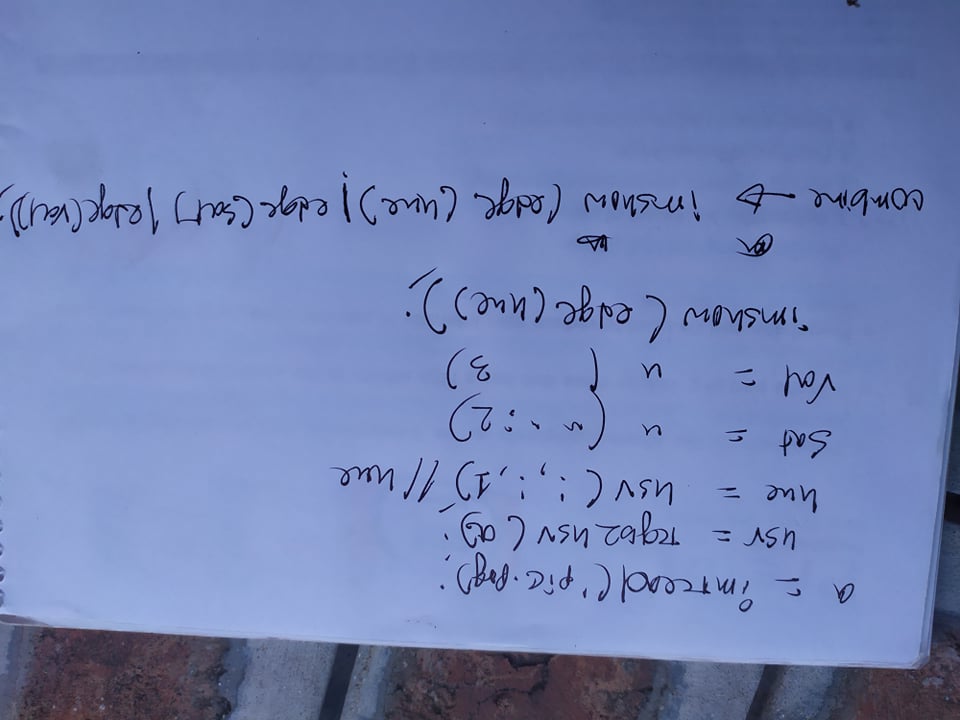 a = imread('pic.png);
hsv = rgb2hsv(a);
hue = hsv(:,:,1) // hue
Sat = " (" " : 2)
Val = " ( 3)
imshow(edge(hue));
combine → imshow (edge (hue) | edge(sat) | edge(val));